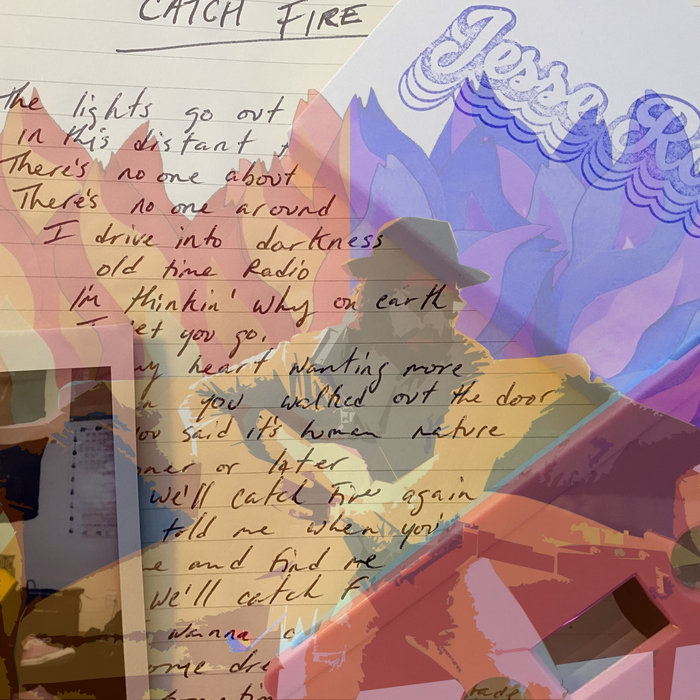 CATCH FIRE
Jesse
The lights go out
in this distant
There's no one about
There's no one around
I drive into darkness
old time Radio
I'm thinkin' why on earth
I let you go.
my heart wanting more
you walked out the door
you said it's human nature
or later
we'll catch fire again
told me when you
and find me
we'll catch
wanna